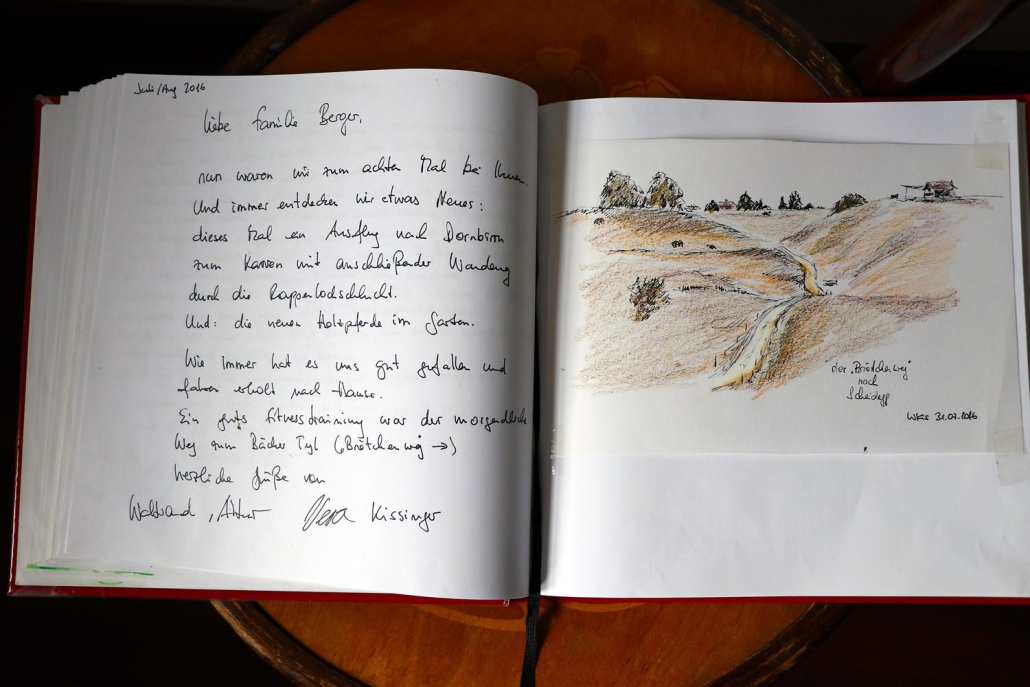 Juli/Aug 2016
liebe Familie Berger,
nun waren wir zum achten Mal bei Ihnen.
Und immer entdecken wir etwas Neues:
dieses Mal ein Ausflug nach Dornbirn
zum Karren mit anschließender Wanderung
durch die Rappenlochschlucht.
Und: die neuen Holzpferde im Garten.
Wie immer hat es uns gut gefallen und
fahren erholt nach Hause.
Ein gutes Fitnesstraining war der morgendliche
Weg zum Bäcker ("Brötchenweg →)
herzliche Grüße von
Waltraud, Vera Kissinger
der "Brötchenweg"
nach
Scheidegg
31.07.2016